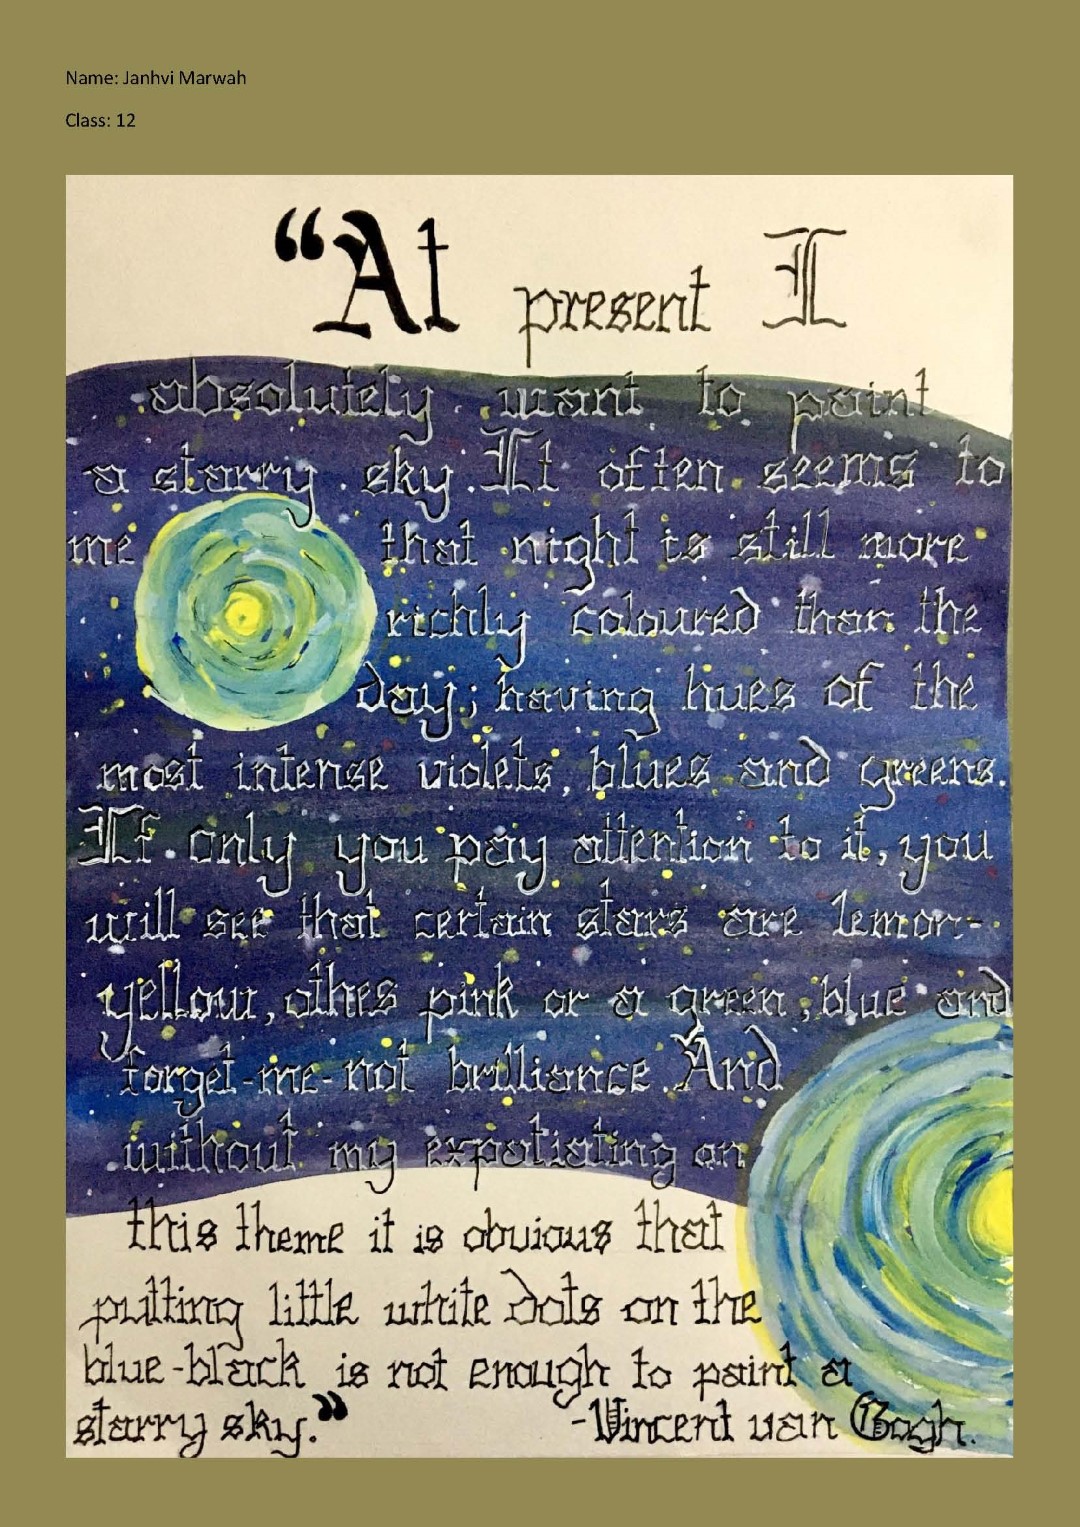 Name: Janhvi Marwah
Class: 12
“At present I
absolutely want to paint
a starry sky. It often seems to
me that night is still more
richly coloured than the
day; having hues of the
most intense violets, blues and greens.
If only you pay attention to it, you
will see that certain stars are lemon-
yellow, othes pink or a green, blue and
forget-me-not brilliance. And
without my expatiating on
this theme it is obvious that
putting little white dots on the
blue-black is not enough to paint a
starry sky.”
-Vincent van Gogh.